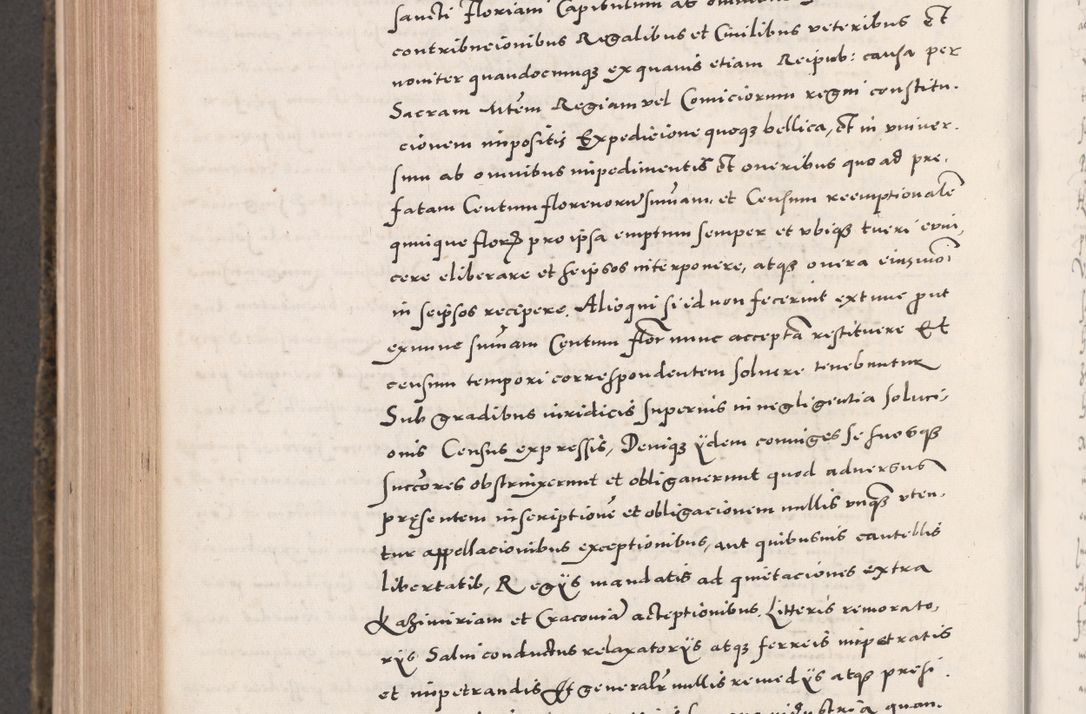 sancti Floriani Capitulum ab omnibus
contribucionibus Regalibus et Civilibus veteribus et
noviter quandocumqꝫ ex quavis etiam Reipub: causa per
Sacram Mtem Regiam vel Comiciorum regni constitu-
cionem impositis Expedicione quoqꝫ bellica, et in univer-
sum ab omnibus impedimentis et oneribus quo ad pre-
fatam Centum florenorũ sum̃am, et Censum reemptionalẽ
quinque florꝝ pro ipsa emptum semper et ubiqꝫ tueri evin-
cere eliberare et seipsos interponere, atqꝫ onera eiusmoi
in seipsos recipere. Alioqui si id non fecerint extunc put
exnunc sum̃am Centum flor nunc acceptã restituere Et
censum tempori correspondentem solvere tenebuntur
Sub gradibus iuridicis superius in negligentia soluci-
onis Census expressis, Deniqꝫ ijdem coniuges se suosqꝫ
succõres obstrinxerunt et obligaverunt quod adversus
pręsentem inscriptionẽ et obligacionem nullis unqꝫ uten-
tur appellacionibus exceptionibus, aut quibusvis cautellis
libertatib, Regijs mandatis ad quietaciones extra
Kazimiriam et Cracoviã acceptionibus. Litteris remorato-
rijs Salvi conductus relaxatorijs atqꝫ ferreis impetratis
et impetrandis Et generalr nullis remedijs atqꝫ presi-